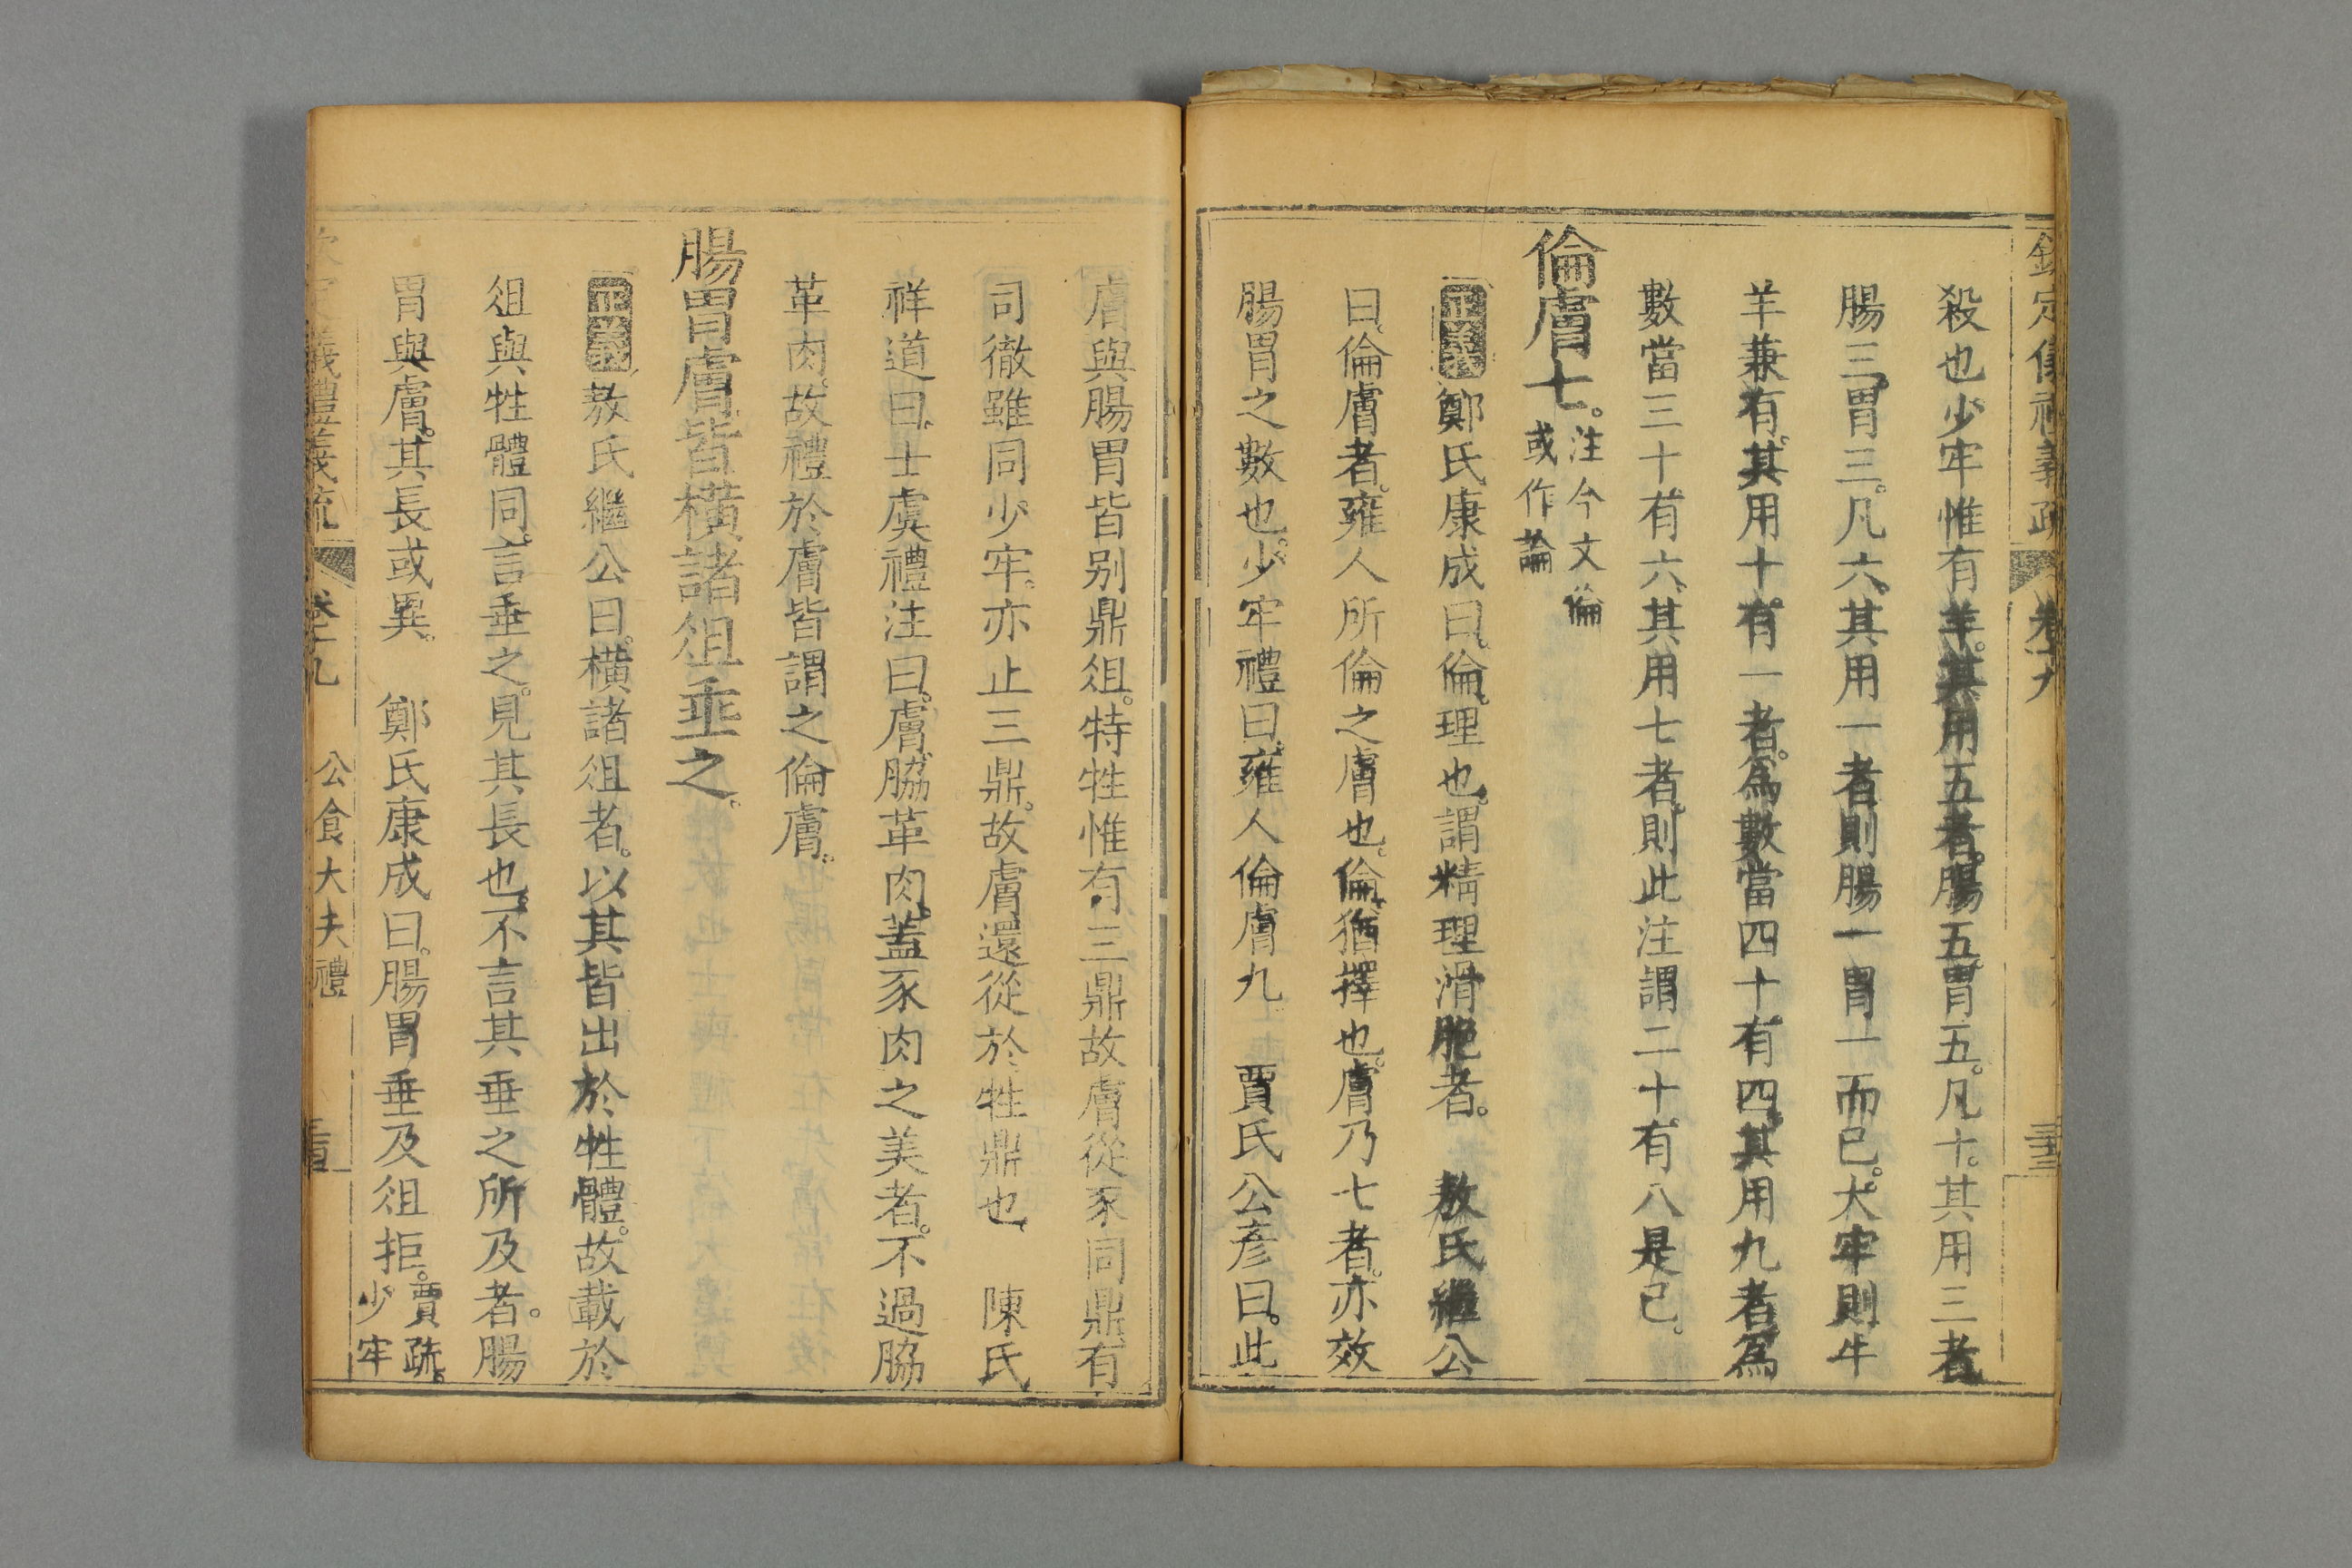 殺也少牢惟有羊其用五者腸五胃五凡十其用三者
腸三胃三凡六其用一者則腸一胃一而已大牢則牛
羊兼有其用十有一者為數當四十有四其用九者為
數當三十有六其用七者則此注謂二十有八是已
倫膚七。注今文倫
或作論
正義鄭氏康成曰倫理也謂精理滑脃者。 敖氏繼公
曰倫膚者雍人所倫之膚也倫猶擇也膚乃七者亦效
腸胃之數也少牢禮曰雍人倫膚九 賈氏公彥曰此
膚與腸胃皆別鼎俎。特牲惟有三鼎故膚從豕同鼎有
司徹雖同少牢亦止三鼎。故膚還從於牲鼎也 陳氏
祥道曰士虞禮注曰膚脅革肉蓋豕肉之美者。不過脅
革肉故禮於膚皆謂之倫膚。
腸胃膚皆橫諸俎垂之。
正義敖氏繼公曰橫諸俎者。以其皆出於牲體故載於
俎與牲體同言垂之見其長也不言其垂之所及者。腸
胃與膚其長或異。 鄭氏康成曰腸胃垂及俎拒。賈疏
少牢
卷十九 公食大夫禮